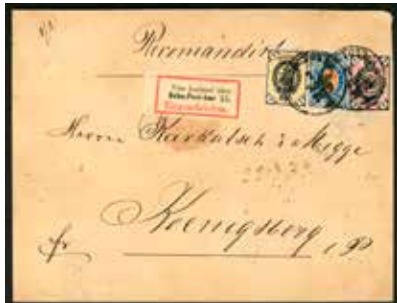 Recomandirt
Vom Ausland über
Bahn-Post-bur 15.
Eingeschrieben.
Herrn Karkutsch & Megge
Koenigsberg i/P
fr